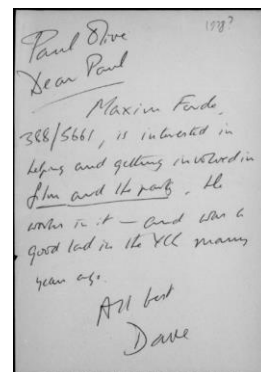 1978?
Paul Olive
Dear Paul
Maxim Forde,
388/5661, is interested in
helping and getting involved in
film and the party. He
works in it — and was a
good lad in the YCL many
years ago.
All best
Dave